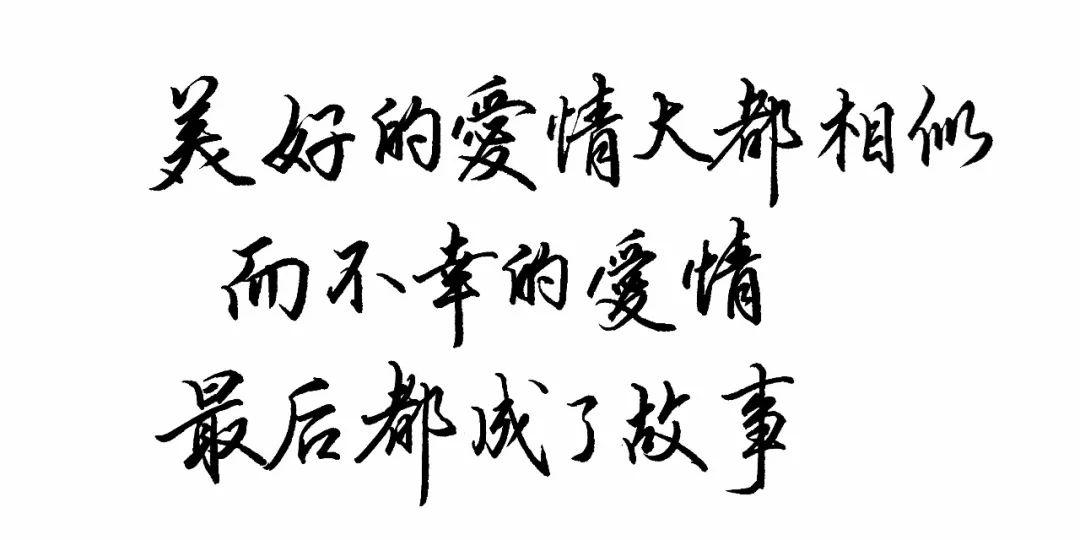 美好的愛情大都相似
而不幸的愛情
最后都成了故事